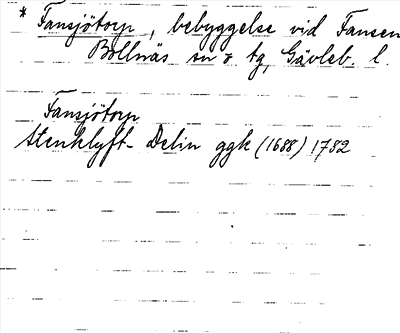 * Fansjötorp, bebyggelse vid Fansen
Bollnäs sn o tg, Gävleb. l.
Fansjötorp
Stenklyft-Delin ggk (1688) 1782